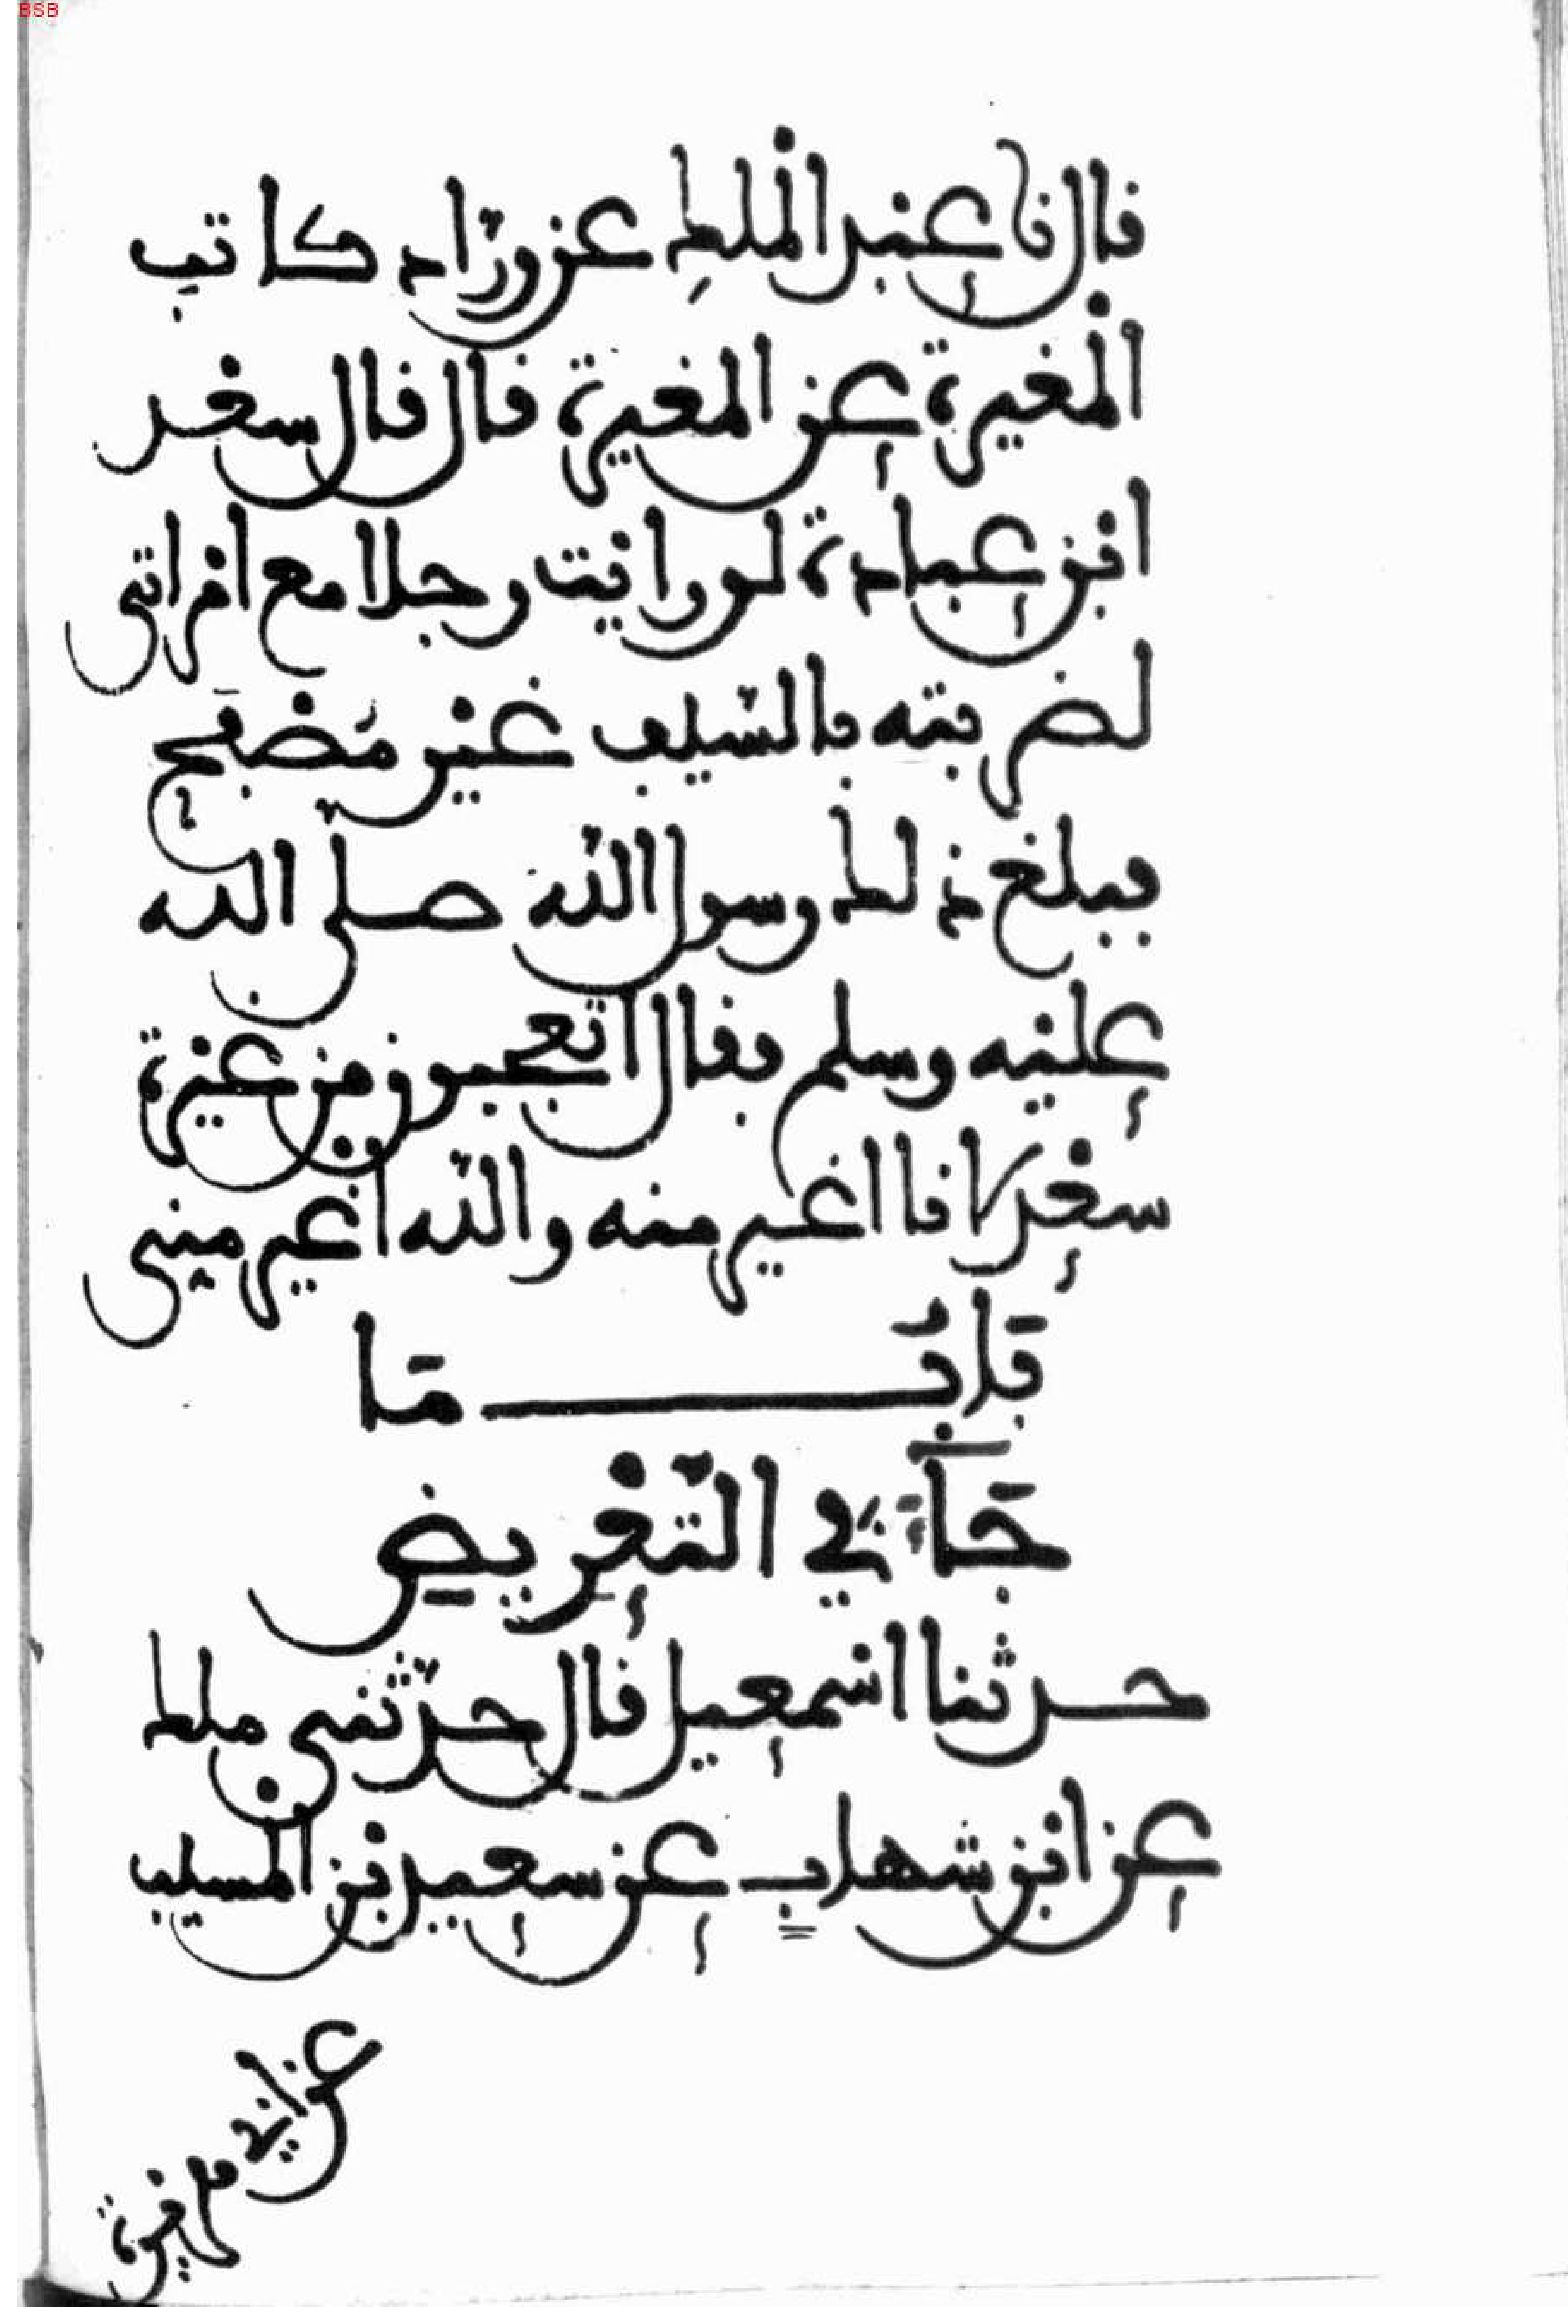 BSB
قال نا عبد الملك عن وراد كاتب
المغيرة عن المغيرة قال قال سعد
ابن عبادة لو رايت رجلا مع امراتي
لضربته بالسيف غير مصفح
فبلغ ذلك رسول الله صلى الله
عليه وسلم فقال اتعجبون من غيرة
سعد لانا اغير منه والله اغير مني
باب ما
جآء في التعريض
حدثنا اسمعيل قال حدثني ملك
عن ابن شهاب عن سعيد بن المسيب
عن ابي هريرة